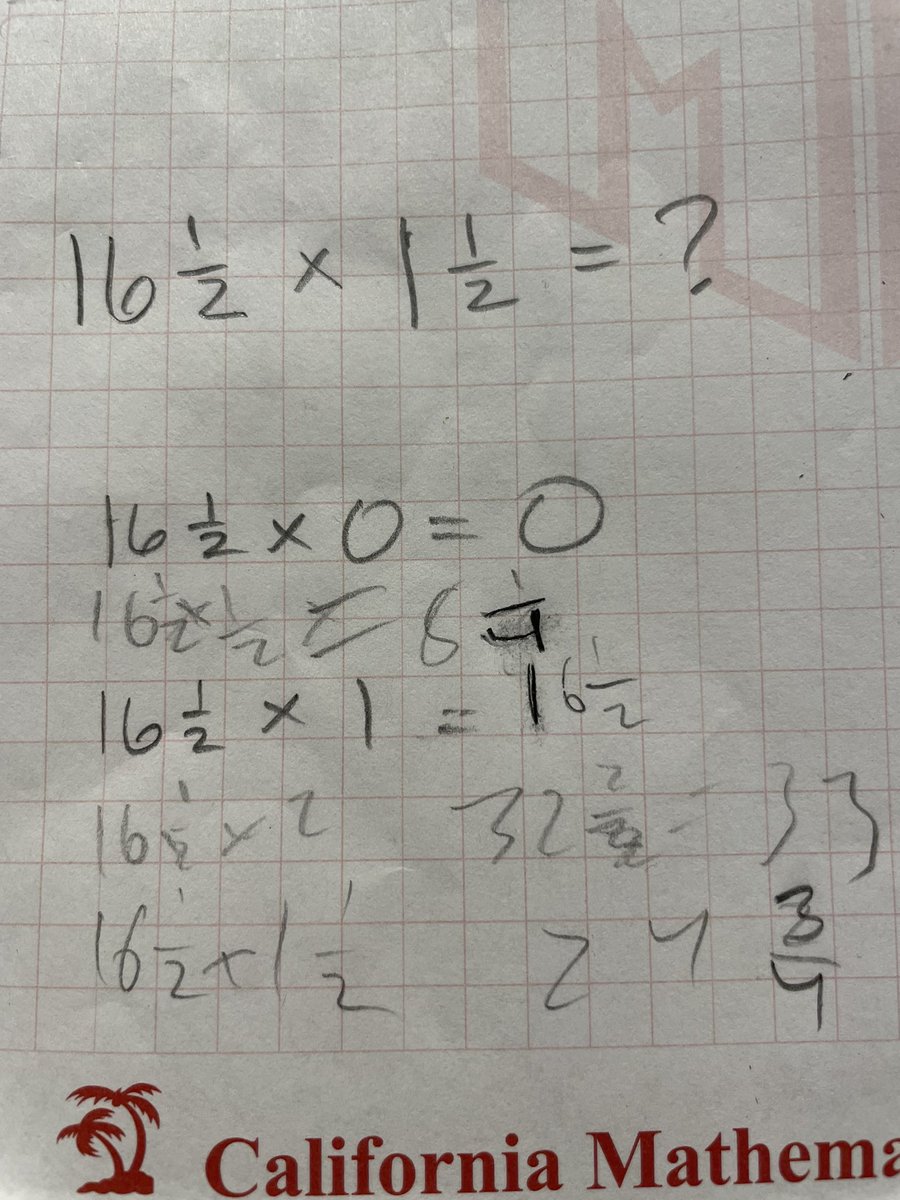 16 1/2 × 1 1/2 = ?
16 1/2 × 0 = 0
16 1/2 × 1/2 = 8 1/4
16 1/2 × 1 = 16 1/2
16 1/2 × 2 32 2/2 = 33
16 1/2 × 1 1/2 24 3/4
California Mathema